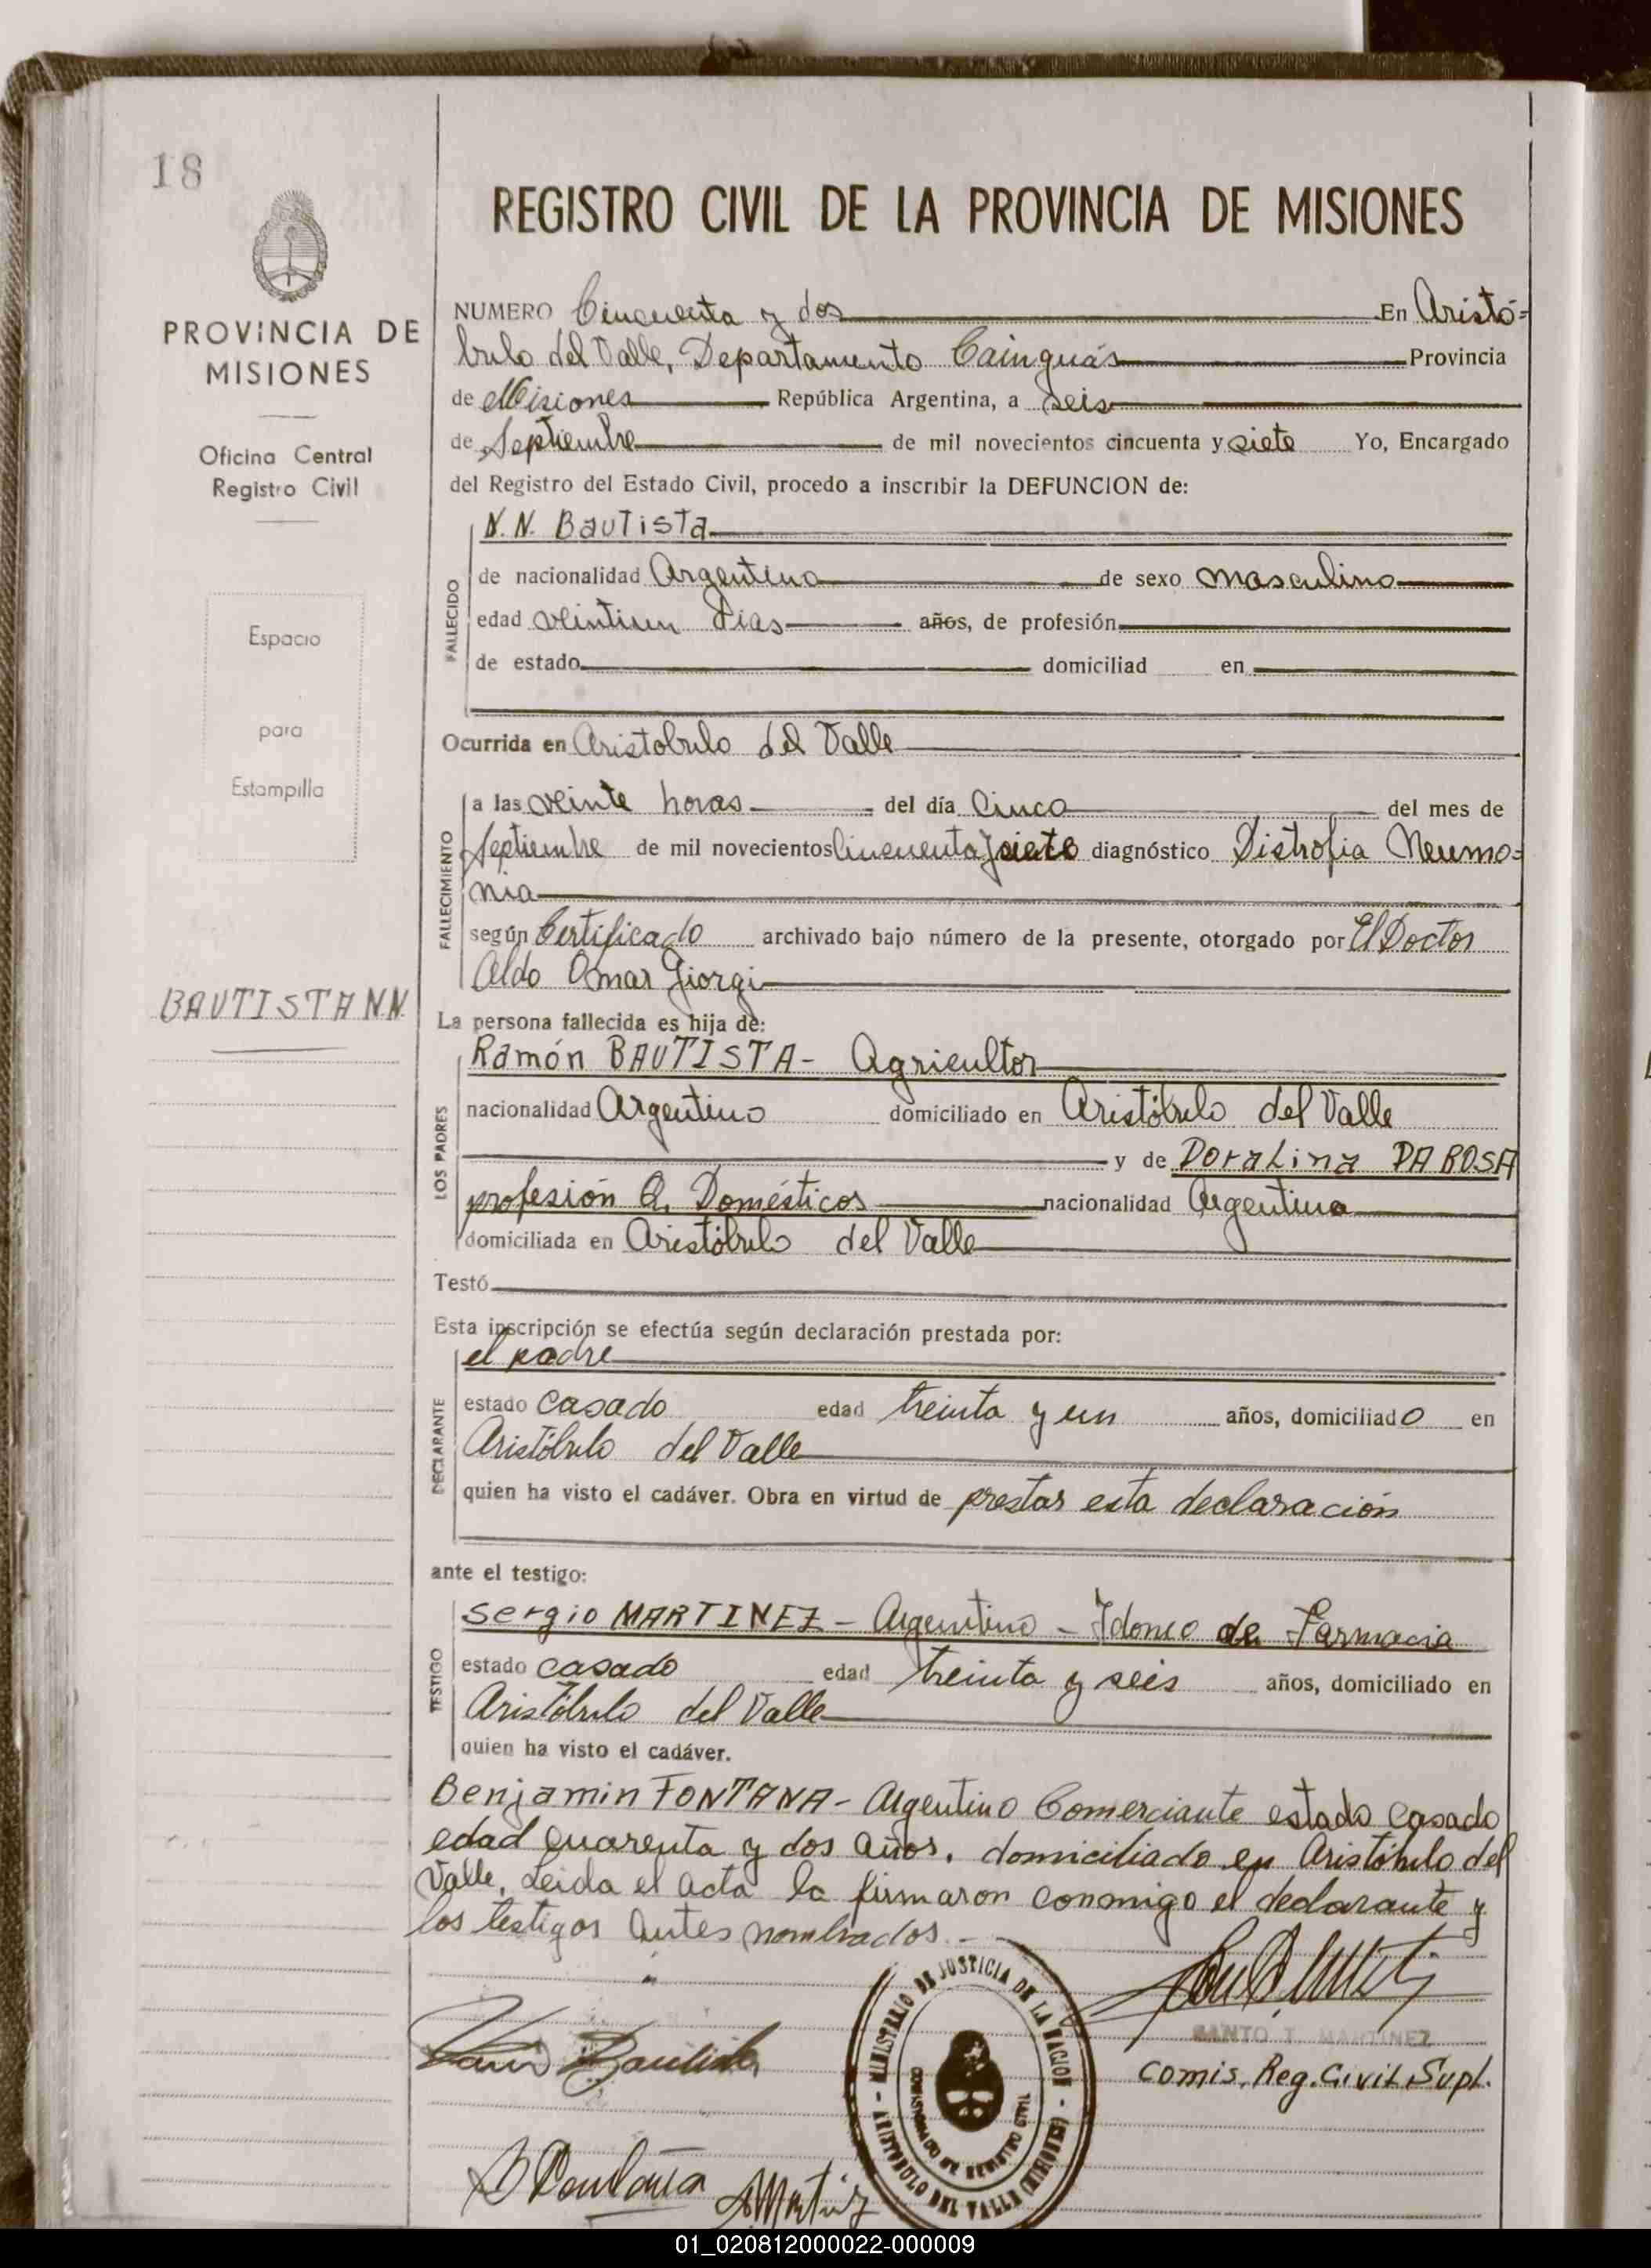 18
REGISTRO CIVIL DE LA PROVINCIA DE MISIONES
PROVINCIA DE
MISIONES
Oficina Central
Registro Civil
Espacio
para
Estampilla
BAUTISTA N.N.
NUMERO Cincuenta y dos En Aristó=
bulo del Valle, Departamento Cainguás Provincia
de Misiones República Argentina, a seis
de Septiembre de mil novecientos cincuenta y siete Yo, Encargado
del Registro del Estado Civil, procedo a inscribir la DEFUNCION de:
N.N. Bautista
FALLECIDO
de nacionalidad Argentina de sexo masculino
edad veintiun dias años, de profesión
de estado domiciliad en
Ocurrida en Aristobulo del Valle
FALLECIMIENTO
a las veinte horas del día Cinco del mes de
Septiembre de mil novecientos Cincuenta y siete diagnóstico Distrofia Neumo=
nia
según Certificado archivado bajo número de la presente, otorgado por El Doctor
Aldo Omar Giorgi
La persona fallecida es hija de:
LOS PADRES
Ramón BAUTISTA - Agricultor
nacionalidad Argentino domiciliado en Aristóbulo del Valle
y de Doralina DA ROSA
profesión Q. Domésticos nacionalidad Argentina
domiciliada en Aristóbulo del Valle
Testó
Esta inscripción se efectúa según declaración prestada por:
DECLARANTE
el padre
estado Casado edad treinta y un años, domiciliado en
Aristóbulo del Valle
quien ha visto el cadáver. Obra en virtud de prestar esta declaración
ante el testigo:
TESTIGO
Sergio MARTINEZ - Argentino - Idoneo de Farmacia
estado casado edad treinta y seis años, domiciliado en
Aristóbulo del Valle
quien ha visto el cadáver.
Benjamin FONTANA - Argentino Comerciante estado casado
edad cuarenta y dos años, domiciliado en Aristóbulo del
Valle, Leida el acta la firmaron conmigo el declarante y
los testigos antes nombrados.-
MINISTERIO DE JUSTICIA DE LA NACION
ARISTOBULO DEL VALLE (MISIONES)
SANTO T. MARTINEZ
Comis. Reg. Civil Supl.
01_020812000022-000009